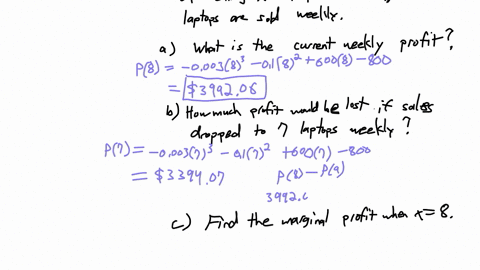 laptops are sold weekly.
a) What is the current weekly profit?
P(8) = -0.003(8)³ -0.1(8)² +600(8) -800
= $3992.06
b) How much profit would be lost if sales
dropped to 7 laptops weekly?
P(7) = -0.003(7)³ -0.1(7)² +600(7) -800
= $3394.07 P(8) - P(9)
3992.0
c) Find the marginal profit when x=8.